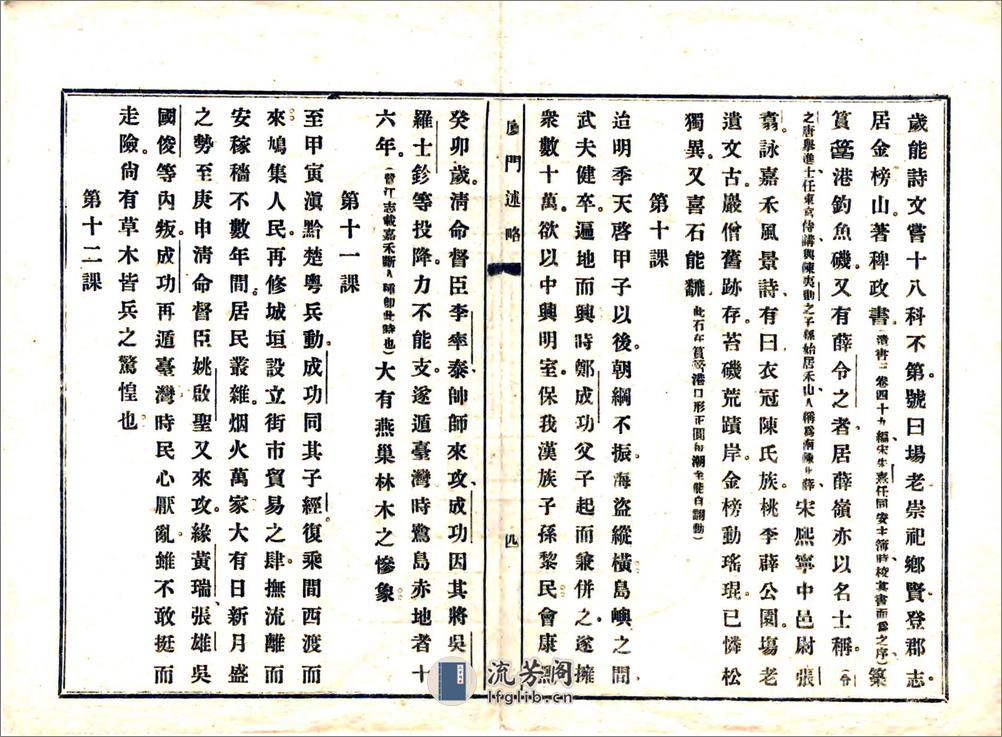 歲能詩文嘗十八科不第號曰場老崇祀鄉賢登郡志
居金榜山著稗政書(清書三卷四十九編宋朱熹任同安主簿時校其書而爲之序)築
篔簹港釣魚磯又有薛令之者居薛嶺亦以名士稱(令
之唐舉進士任東宮侍講與陳夷勳之子孫始居禾山人稱爲南陳北薛宋熙寧中邑尉張
翥詠嘉禾風景詩有曰衣冠陳氏族桃李薛公園塲老
遺文古巖僧舊跡存苔磯荒蹟岸金榜動瑤琨已憐松
獨異又喜石能飜(此石在篔簹港口形正圓每潮至能自翻動)
第十課
迨明季天啓甲子以後朝綱不振海盜縱橫島嶼之間
武夫健卒遍地而興時鄭成功父子起而兼併之遂擁
衆數十萬欲以中興明室保我漢族子孫黎民會康熙
廈門述略
四
癸卯歲清命督臣李率泰帥師來攻成功因其將吳
羅士鉁等投降力不能支遂遁臺灣時鷺島赤地者十
六年(晉江志載嘉禾斷人種卽此時也)大有燕巢林木之慘象
第十一課
至甲寅滇黔楚粵兵動成功同其子經復乘間西渡而
來鳩集人民再修城垣設立街市貿易之肆撫流離而
安稼穡不數年間居民叢雜烟火萬家大有日新月盛
之勢至庚申清命督臣姚啟聖又來攻緣黃瑞張雄吳
國俊等內叛成功再遁臺灣時民心厭亂雖不敢挺而
走險尙有草木皆兵之驚惶也
第十二課
流芳阁
lfglib.cn